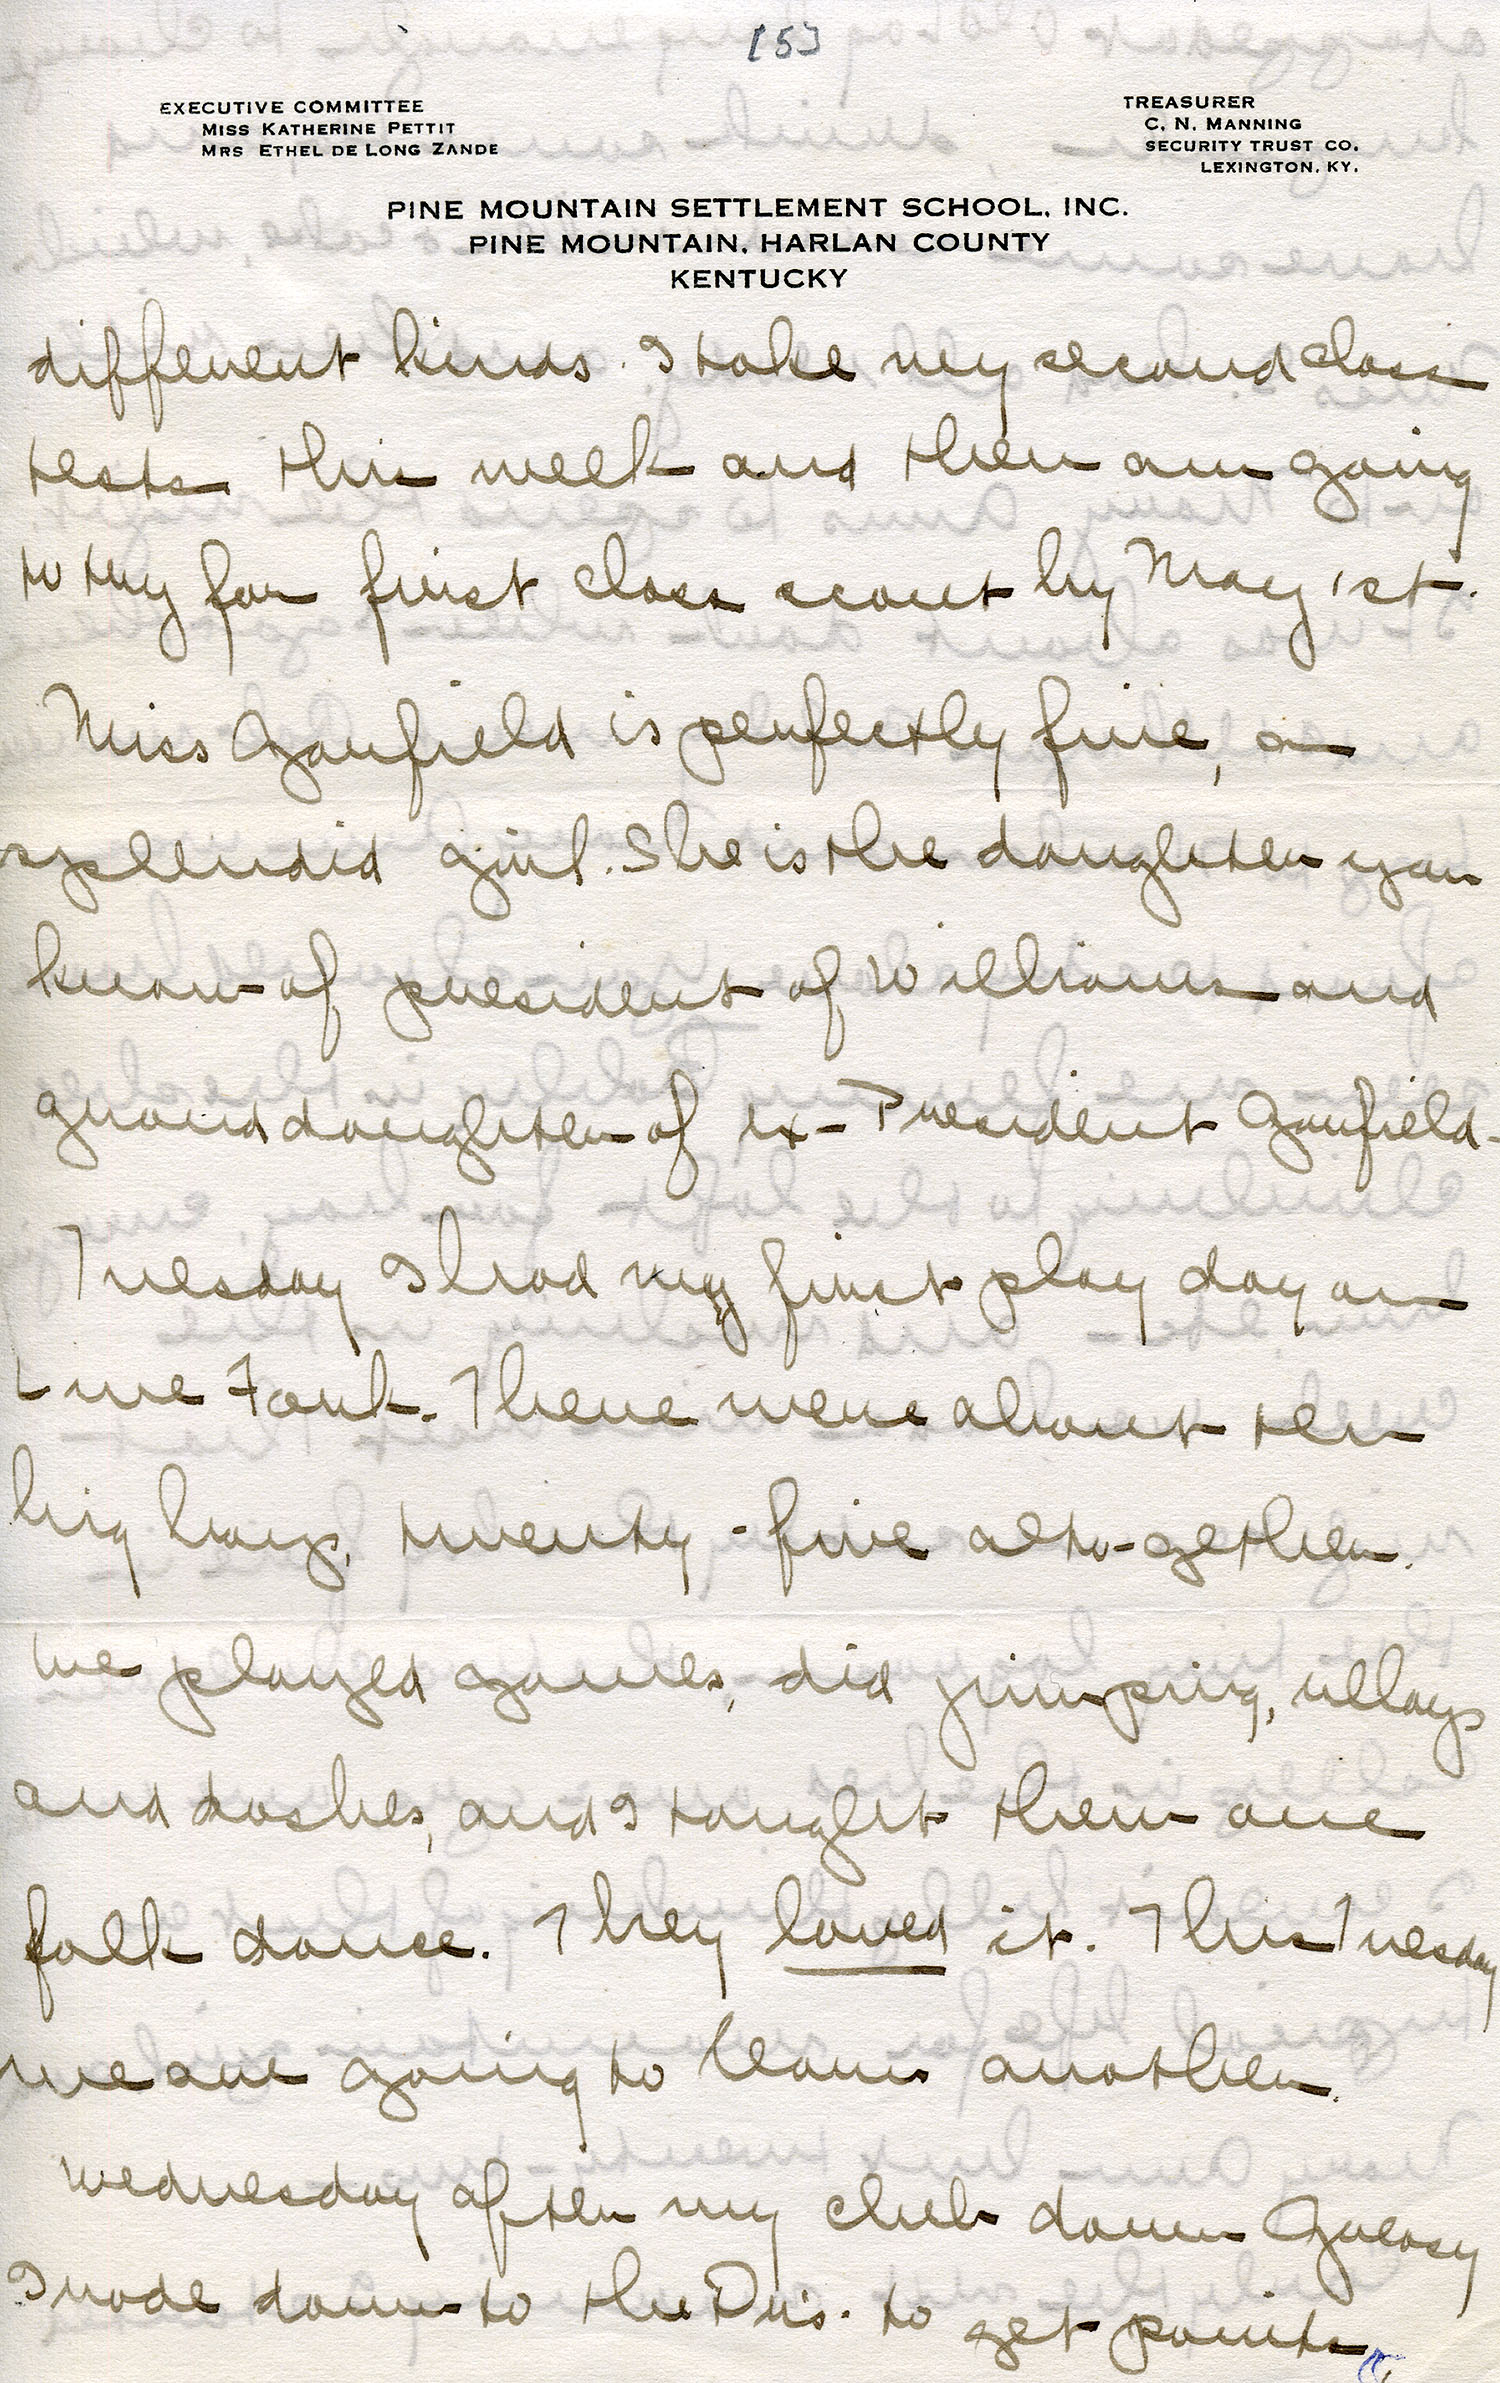 [5]
EXECUTIVE COMMITTEE
MISS KATHERINE PETTIT
MRS ETHEL DE LONG ZANDE
TREASURER
C. N. MANNING
SECURITY TRUST CO.
LEXINGTON, KY.
PINE MOUNTAIN SETTLEMENT SCHOOL, INC.
PINE MOUNTAIN, HARLAN COUNTY
KENTUCKY
different kinds. I take my second class
tests this week and then am going
to try for first class scout by May 1st.
Miss Garfield is perfectly fine, a
splendid girl. She is the daughter you
know of president of Williams and
granddaughter of ex-President Garfield-
Tuesday I had my first play day on
Line Fork. There were about ten
big boys, twenty-five alto-gether.
We played games, did jumping, relays
and dashes, and I taught them one
folk dance. They loved it. This Tuesday
we are going to learn another.
Wednesday after my club down Greasy
I rode down to the Dr's. to get points